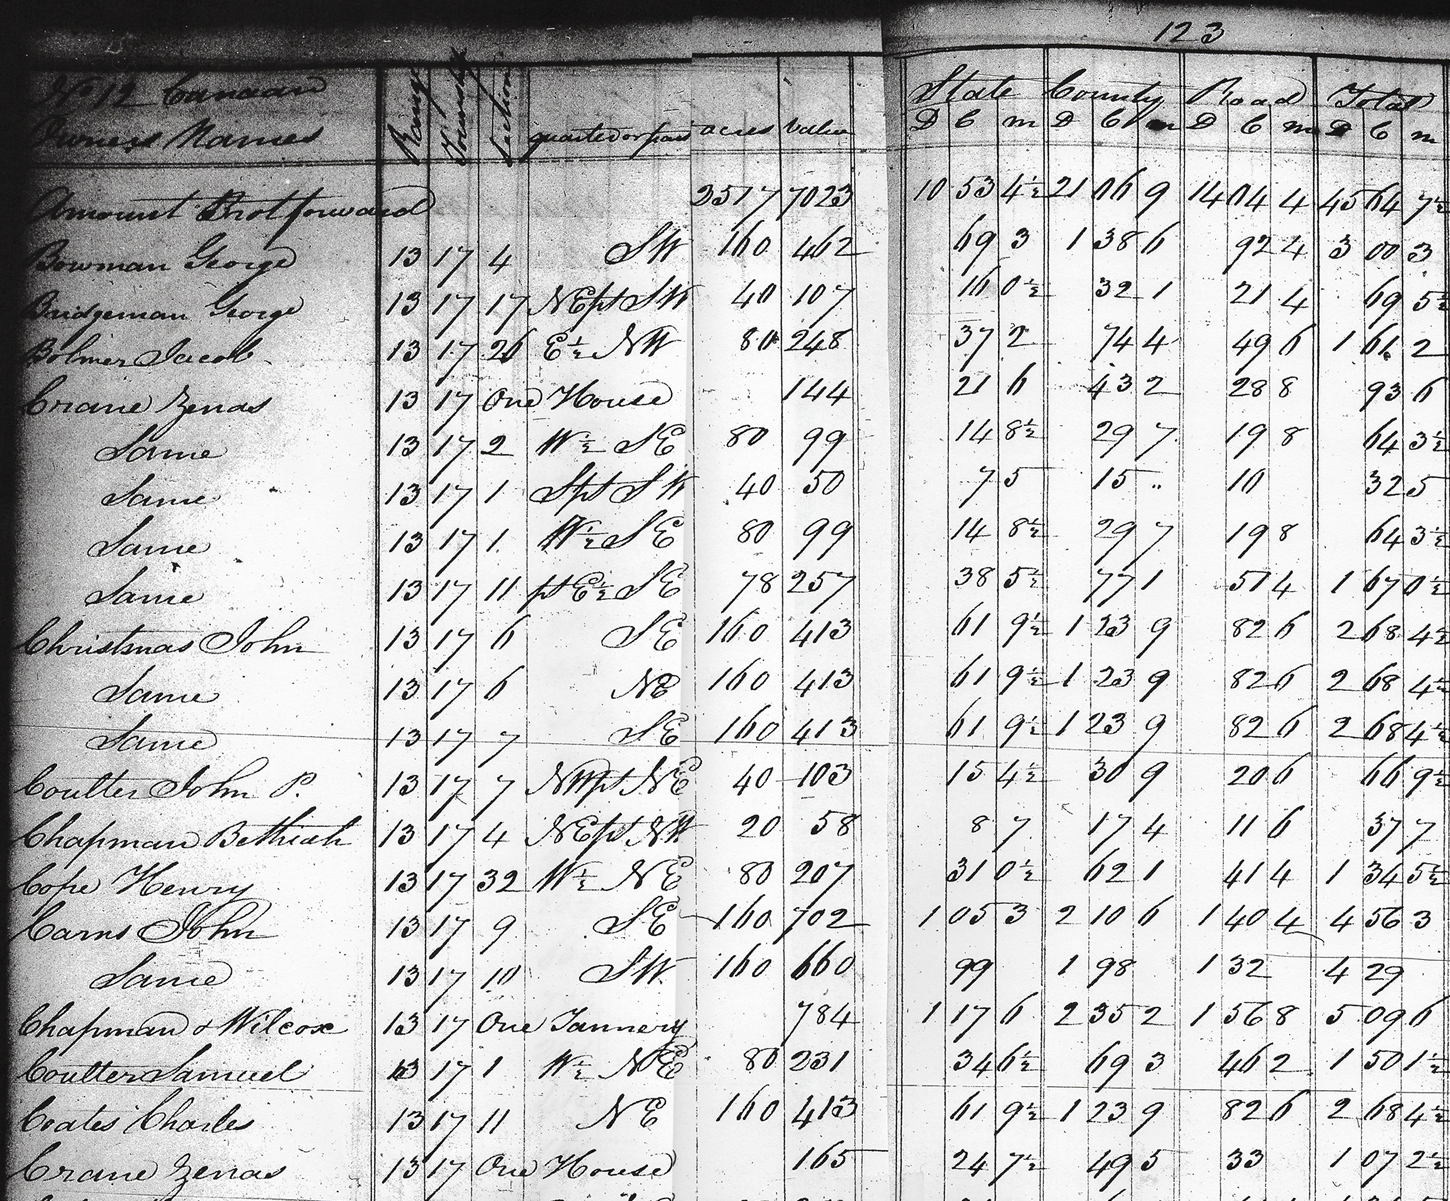 123
No 12 Canaan State County Road Total
Owners Names Range Township Section quarter or part acres value D C m D C m D C m D C m
Amount Brot forward 2517 7023 10 53 4½ 21 06 9 14 04 4 45 64 7½
Bowman George 13 17 4 SW 160 462 69 3 1 38 6 92 4 3 00 3
Bridgeman George 13 17 17 NEpt SW 40 107 16 0½ 32 1 21 4 69 5½
Bolmer Jacob 13 17 26 E½ NW 80 248 37 2 74 4 49 6 1 61 2
Crane Zenas 13 17 One House 144 21 6 43 2 28 8 93 6
Same 13 17 2 W½ SE 80 99 14 8½ 29 7 19 8 64 3½
Same 13 17 1 Spt SW 40 50 7 5 15 " 10 32 5
Same 13 17 1 W½ SE 80 99 14 8½ 29 7 19 8 64 3½
Same 13 17 11 pt E½ SE 78 257 38 5½ 77 1 51 4 1 67 0½
Christmas John 13 17 6 SE 160 413 61 9½ 1 23 9 82 6 2 68 4½
Same 13 17 6 NE 160 413 61 9½ 1 23 9 82 6 2 68 4½
Same 13 17 7 SE 160 413 61 9½ 1 23 9 82 6 2 68 4½
Coulter John P. 13 17 7 NWpt NE 40 103 15 4½ 30 9 20 6 66 9½
Chapman Bethiah 13 17 4 NEpt NW 20 58 8 7 17 4 11 6 37 7
Cope Henry 13 17 32 W½ NE 80 207 31 0½ 62 1 41 4 1 34 5½
Carns John 13 17 9 SE 160 702 1 05 3 2 10 6 1 40 4 4 56 3
Same 13 17 10 SW 160 660 99 1 98 1 32 4 29
Chapman & Wilcox 13 17 One Tannery 784 1 17 6 2 35 2 1 56 8 5 09 6
Coulter Samuel 13 17 1 W½ NE 80 231 34 6½ 69 3 46 2 1 50 1½
Coates Charles 13 17 11 NE 160 413 61 9½ 1 23 9 82 6 2 68 4½
Crane Zenas 13 17 One House 165 24 7½ 49 5 33 1 07 2½